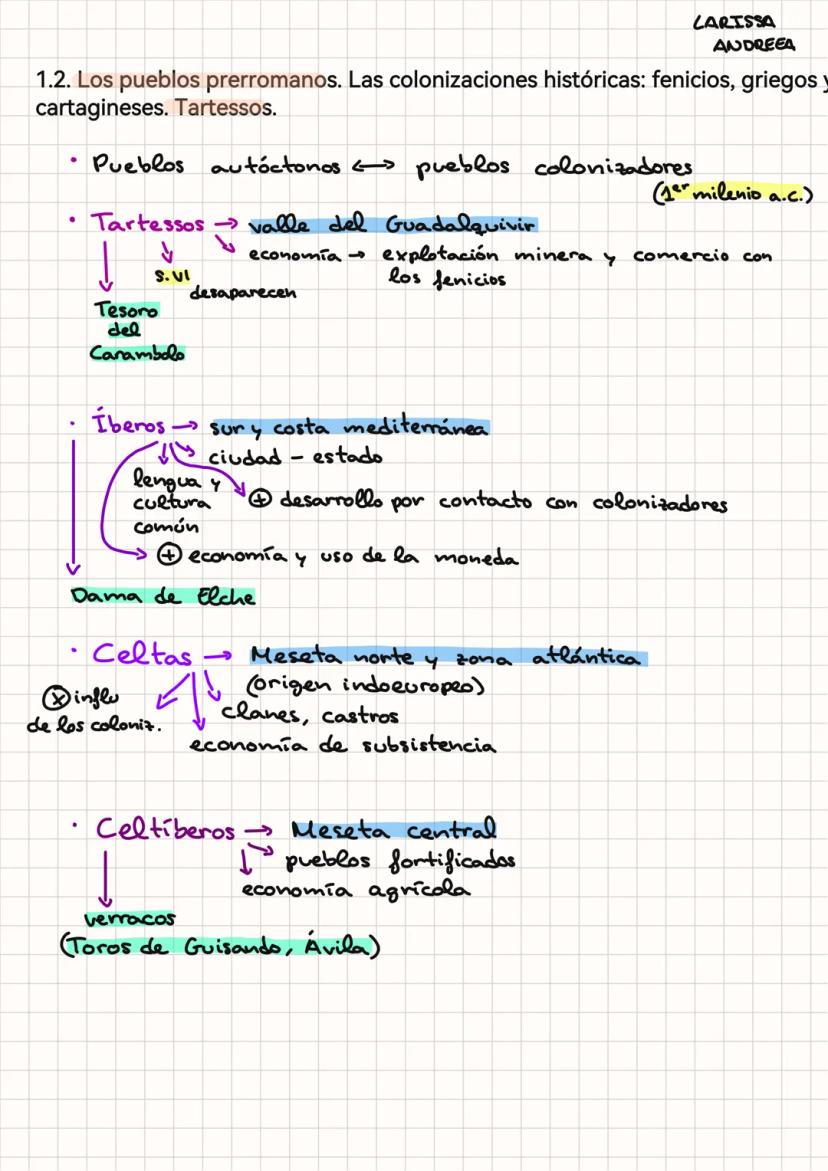 LARISSA
ANDREEA
1.2. Los pueblos prerromanos. Las colonizaciones históricas: fenicios, griegos y
cartagineses. Tartessos.
• Pueblos autóctonos ⟷ pueblos colonizadores
(1er milenio a.c.)
• Tartessos → valle del Guadalquivir
economía → explotación minera y comercio con
los fenicios
s.VI
desaparecen
Tesoro
del
Carambolo
• Íberos → sur y costa mediterránea
ciudad - estado
lengua y
cultura
común
⊕ desarrollo por contacto con colonizadores
⊕ economía y uso de la moneda
Dama de Elche
• Celtas → Meseta norte y zona atlántica
(origen indoeuropeo)
ⓧ influ
de los coloniz.
clanes, castros
economía de subsistencia
• Celtíberos → Meseta central
pueblos fortificados
economía agrícola
verracos
(Toros de Guisando, Ávila)